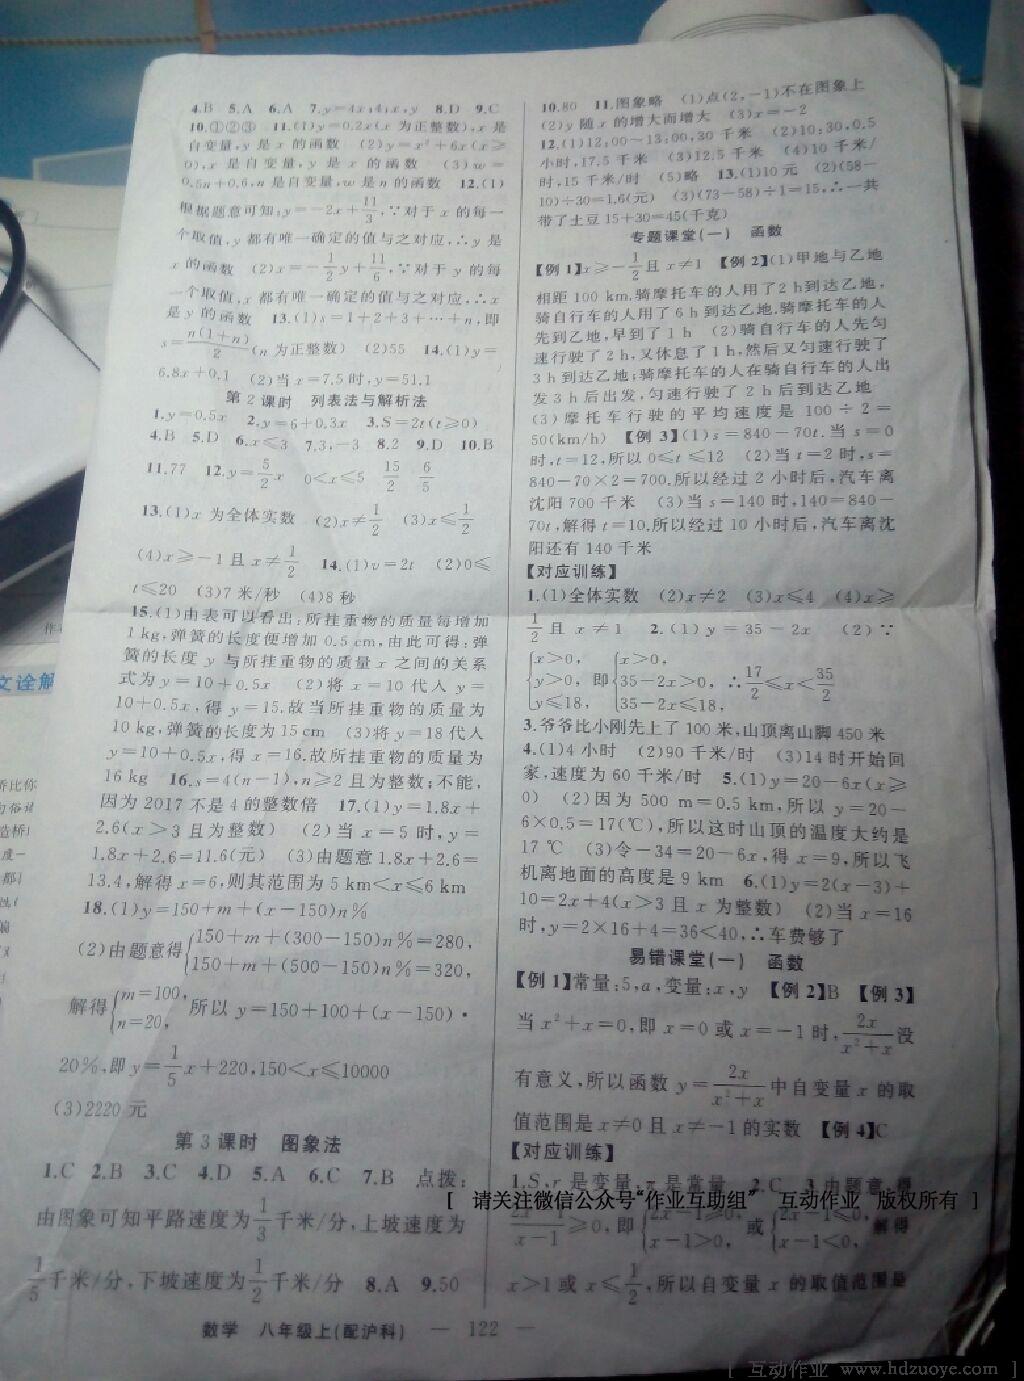 4.B 5.A 6.A 7.y=4x;4;x,y 8.D 9.C
10.①②③ 11.(1)y=0.2x(x 为正整数),x 是
自变量,y 是 x 的函数 (2)y=x²+6x(x≥
0),x 是自变量,y 是 x 的函数 (3)w=
0.5n+0.6,n 是自变量,w 是 n 的函数 12.(1)
根据题意可知:y=-2x+11/3,∵对于 x 的每一
个取值,y 都有唯一确定的值与之对应,∴y 是
x 的函数 (2)x=-1/2y+11/6,∵对于 y 的每
一个取值,x 都有唯一确定的值与之对应,∴x
是 y 的函数 13.(1)s=1+2+3+…+n,即
s=n(1+n)/2(n 为正整数) (2)55 14.(1)y=
6.8x+0.1 (2)当 x=7.5 时,y=51.1
第 2 课时 列表法与解析法
1.y=0.5x 2.y=6+0.3x 3.S=2t(t≥0)
4.B 5.D 6.x≤3 7.3,-3 8.2 9.D 10.B
11.77 12.y=5/2x 0<x≤5 15/2 6/5
13.(1)x 为全体实数 (2)x≠1/2 (3)x≤1/2
(4)x≥-1 且 x≠1/2 14.(1)v=2t (2)0≤
t≤20 (3)7 米/秒 (4)8 秒
15.(1)由表可以看出:所挂重物的质量每增加
1 kg,弹簧的长度便增加 0.5 cm,由此可得:弹
簧的长度 y 与所挂重物的质量 x 之间的关系
式为 y=10+0.5x (2)将 x=10 代入 y=
10+0.5x,得 y=15.故当所挂重物的质量为
10 kg,弹簧的长度为 15 cm (3)将 y=18 代入
y=10+0.5x,得 x=16.故所挂重物的质量为
16 kg 16.s=4(n-1),n≥2 且为整数;不能,
因为 2017 不是 4 的整数倍 17.(1)y=1.8x+
2.6(x>3 且为整数) (2)当 x=5 时,y=
1.8x+2.6=11.6(元) (3)由题意 1.8x+2.6=
13.4,解得 x=6,则其范围为 5 km<x≤6 km
18.(1)y=150+m+(x-150)n%
(2)由题意得{150+m+(300-150)n%=280,
150+m+(500-150)n%=320,
解得{m=100,
n=20, 所以 y=150+100+(x-150)·
20%,即 y=1/5x+220,150<x≤10000
(3)2220 元
第 3 课时 图象法
1.C 2.B 3.C 4.D 5.A 6.C 7.B 点拨:
由图象可知平路速度为1/3千米/分,上坡速度为
1/5千米/分,下坡速度为1/2千米/分 8.A 9.50
10.80 11.图象略 (1)点(2,-1)不在图象上
(2)y 随 x 的增大而增大 (3)x=-2
12.(1)12:00~13:00,30 千米 (2)10:30,0.5
小时,17.5 千米 (3)12.5 千米 (4)10 千米/
时,15 千米/时 (5)略 13.(1)10 元 (2)(58-
10)÷30=1.6(元) (3)(73-58)÷1=15,∴一共
带了土豆 15+30=45(千克)
专题课堂(一) 函数
【例 1】x≥-1/2且 x≠1 【例 2】(1)甲地与乙地
相距 100 km.骑摩托车的人用了2 h到达乙地,
骑自行车的人用了 6 h 到达乙地.骑摩托车的人
先到乙地,早到了 1 h (2)骑自行车的人先匀
速行驶了 2 h,又休息了 1 h,然后又匀速行驶了
3 h 到达乙地;骑摩托车的人在骑自行车的人出
发 3 h 后出发,匀速行驶了 2 h 后到达乙地
(3)摩托车行驶的平均速度是 100÷2=
50(km/h) 【例 3】(1)s=840-70t.当 s=0
时,t=12,所以 0≤t≤12 (2)当 t=2 时,s=
840-70×2=700.所以经过 2 小时后,汽车离
沈阳 700 千米 (3)当 s=140 时,140=840-
70t,解得 t=10.所以经过 10 小时后,汽车离沈
阳还有 140 千米
【对应训练】
1.(1)全体实数 (2)x≠2 (3)x≤4 (4)x≥
1/2且 x≠1 2.(1)y=35-2x (2)∵
{x>0,
y>0,
y≤18, 即{x>0,
35-2x>0,
35-2x≤18, ∴17/2≤x<35/2
3.爷爷比小刚先上了 100 米,山顶离山脚 450 米
4.(1)4 小时 (2)90 千米/时 (3)14 时开始回
家,速度为 60 千米/时 5.(1)y=20-6x(x≥
0) (2)因为 500 m=0.5 km,所以 y=20-
6×0.5=17(℃),所以这时山顶的温度大约是
17 ℃ (3)令-34=20-6x,得 x=9,所以飞
机离地面的高度是 9 km 6.(1)y=2(x-3)+
10=2x+4(x>3 且 x 为整数) (2)当 x=16
时,y=2×16+4=36<40,∴车费够了
易错课堂(一) 函数
【例 1】常量:5,a,变量:x,y 【例 2】B 【例 3】
当 x²+x=0,即 x=0 或 x=-1 时,2x/(x²+x)没
有意义,所以函数 y=2x/(x²+x)中自变量 x 的取
值范围是 x≠0 且 x≠-1 的实数 【例 4】C
【对应训练】
1.S,r 是变量,π 是常量 2.C 3.由题意,得
(2x-1)/(x-1)≥0,即{2x-1≥0,
x-1>0, 或{2x-1≤0,
x-1<0, 解得
x>1 或 x≤1/2,所以自变量 x 的取值范围是
数学 八年级上(配沪科) — 122 —
[ 请关注微信公众号“作业互助组” 互动作业 版权所有 ]
[ 互动作业 www.hdzuoye.com ]
文诠解